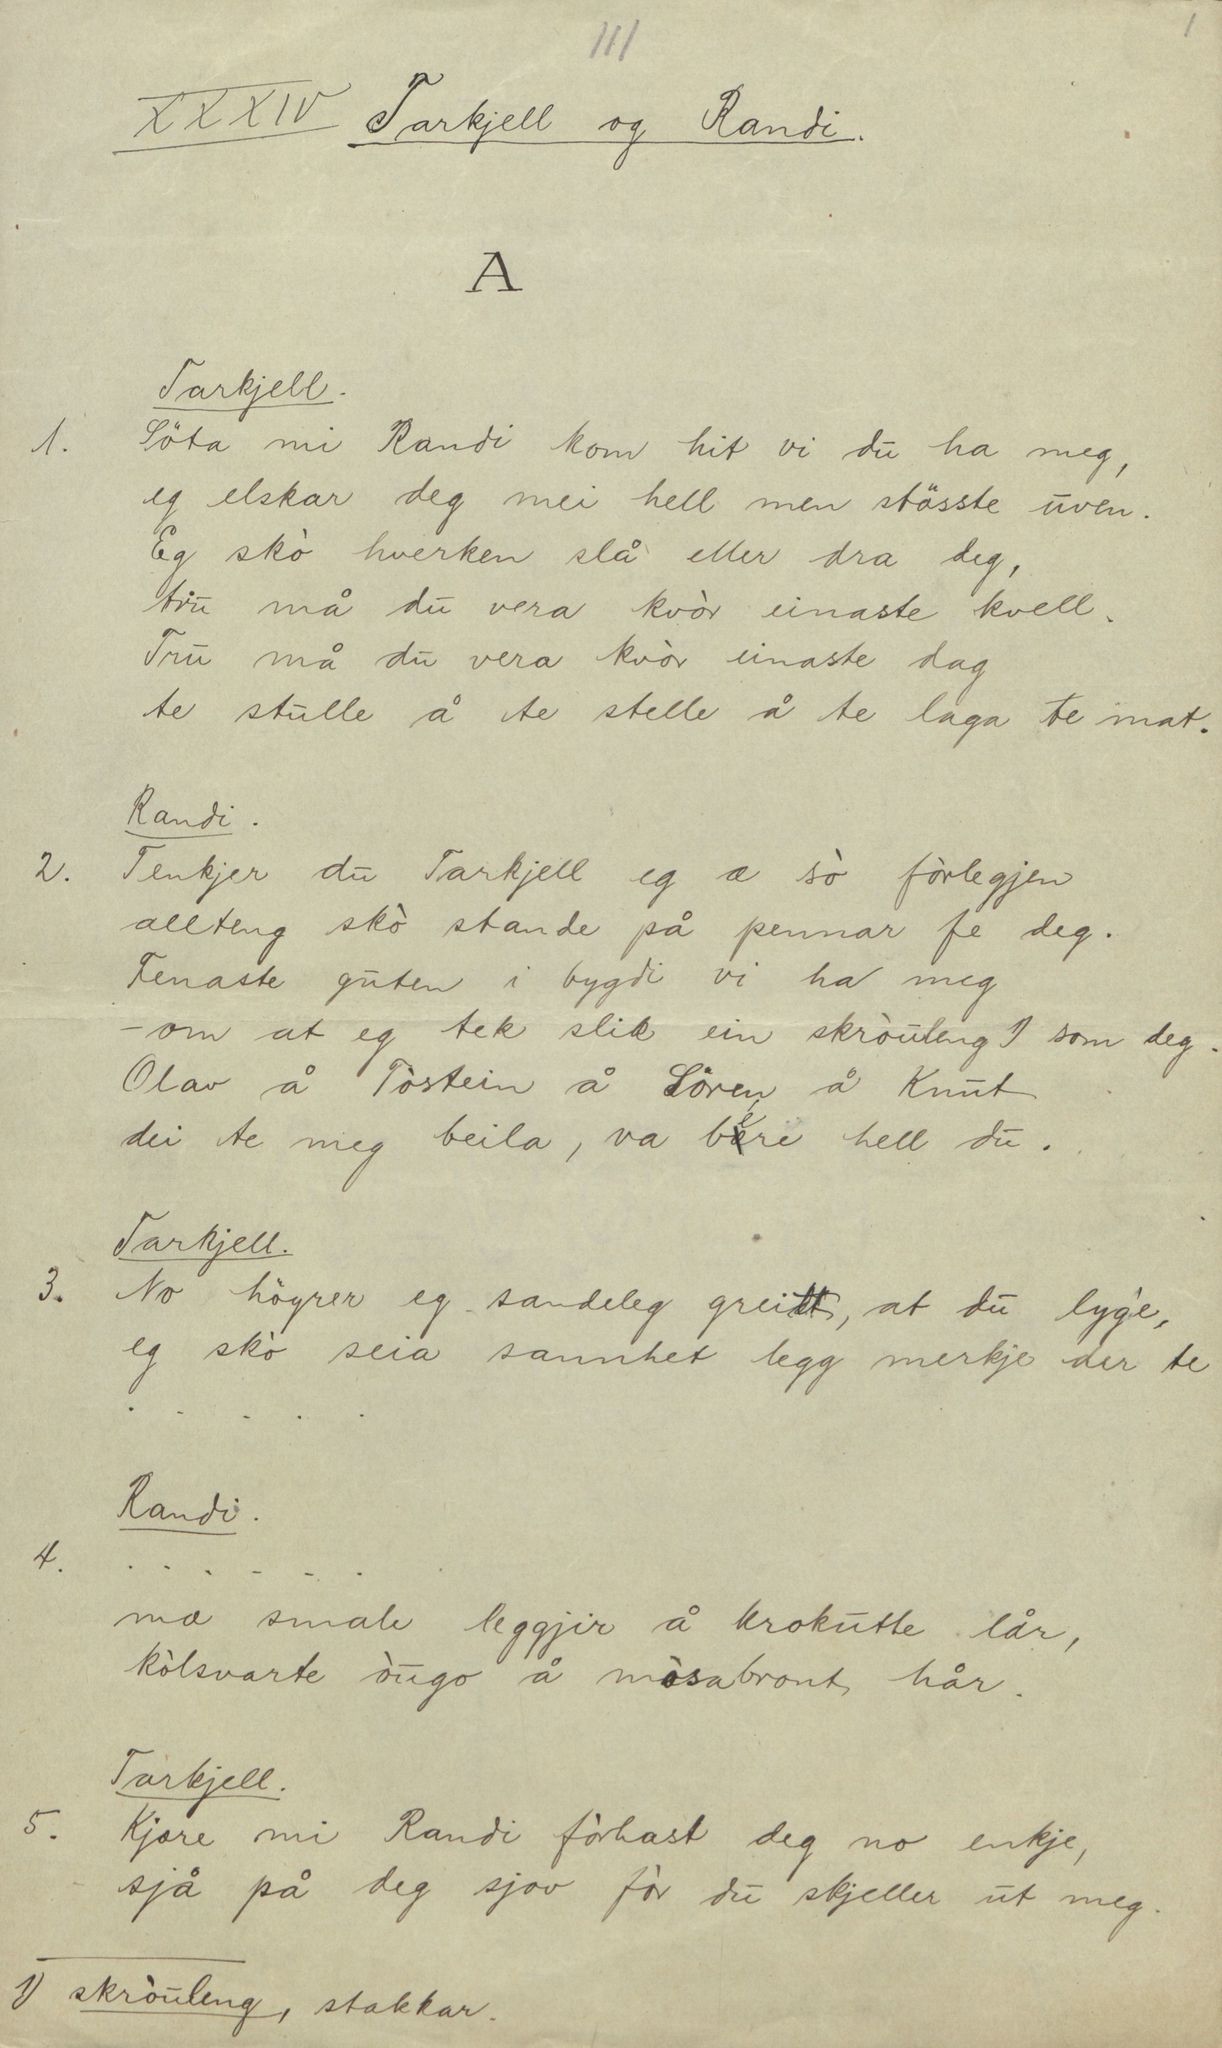 111
1
XXXIV Tarkjell og Randi.
A
Tarkjell.
1. Söta mi Randi kom hit vi du ha meg,
eg elskar deg mei hell men stösste uven.
Eg skò hverken slå eller dra deg,
tru må du vera kvòr einaste kvell.
Tru må du vera kvòr einaste dag
te stulle å te stelle å te laga te mat.
Randi.
2. Tenkjer du Tarkjell eg æ sò fòrlegjen
allteng skò stande på pennar fe deg.
Fenaste guten i bygdi vi ha meg
– om at eg tek slik ein skròuleng 1) som deg.
Olav å Tòstein å Sören å Knut
dei te meg beila, va bere hell du.
Tarkjell.
3. No högrer eg sandeleg greitt, at du lyge,
eg skò seia sannhet legg merkje der te
. . . . .
Randi.
4. . . . . . . .
mæ smale leggjir å krokutte lår,
kòlsvarte òugo å mòsabront hår.
Tarkjell.
5. Kjære mi Randi fòrhast deg no enkje,
sjå på deg sjov fòr du skjeller ut meg.
1) skròuleng, stakkar.